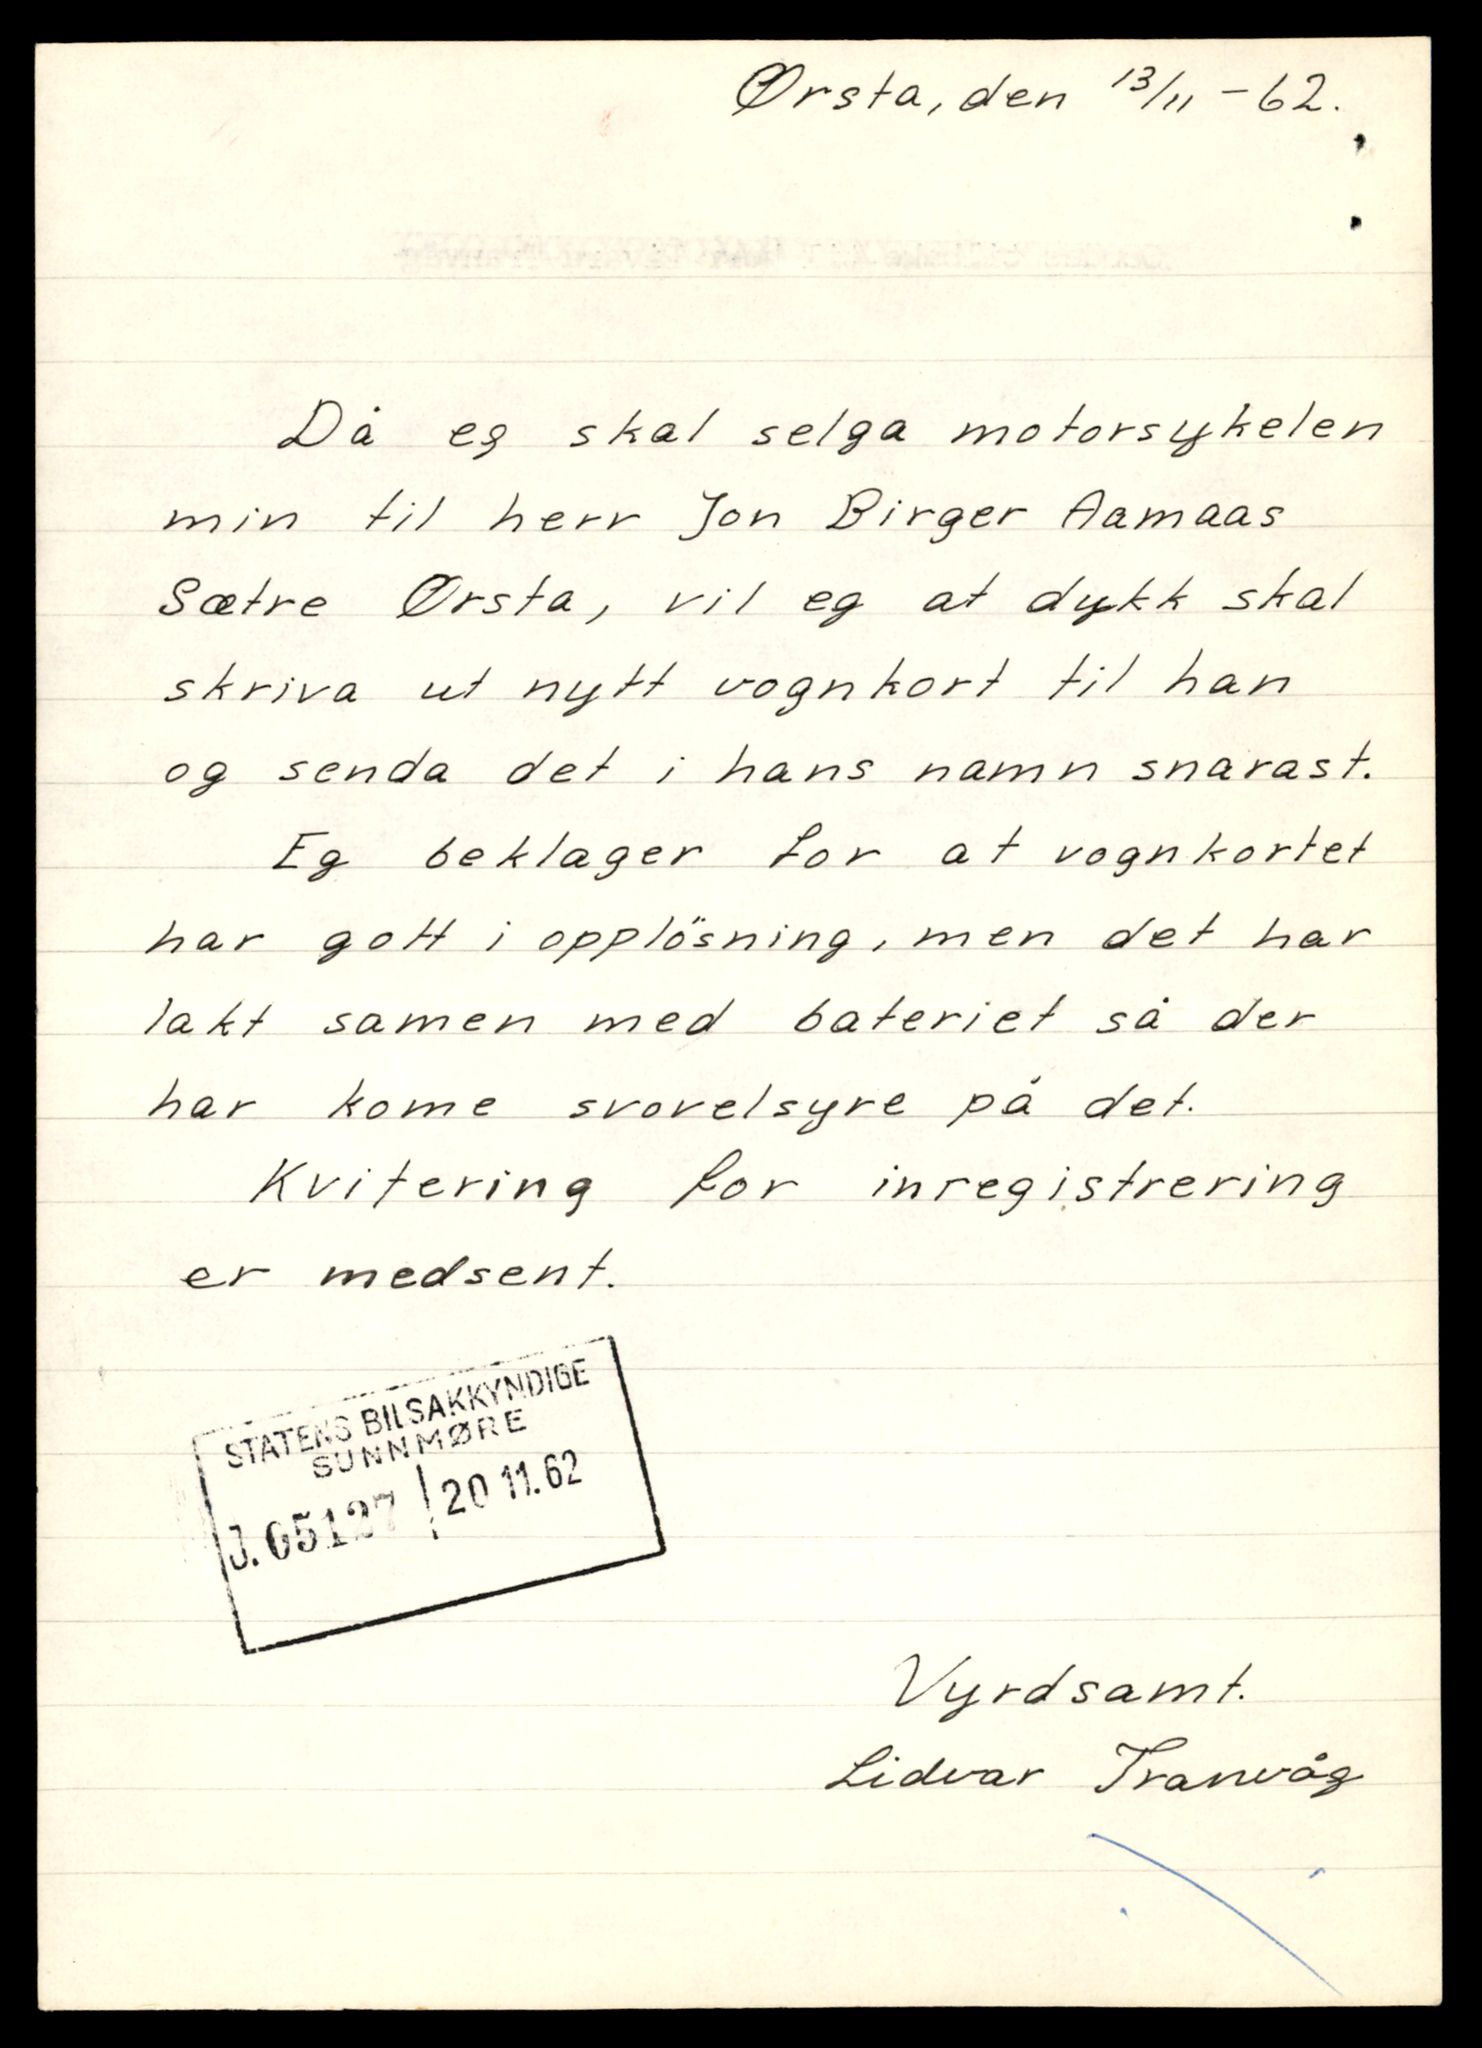 Ørsta, den 13/11 - 62.
Då eg skal selga motorsykelen
min til herr Jon Birger Aamaas
Sætre Ørsta, vil eg at dykk skal
skriva ut nytt vognkort til han
og senda det i hans namn snarast.
Eg beklager for at vognkortet
har gott i opplösning, men det har
lakt samen med bateriet så der
har kome svovelsyre på det.
Kvitering for inregistrering
er medsent.
STATENS BILSAKKYNDIGE
SUNNMØRE
J. 05127 20 11. 62
Vyrdsamt.
Lidvar Tranvåg